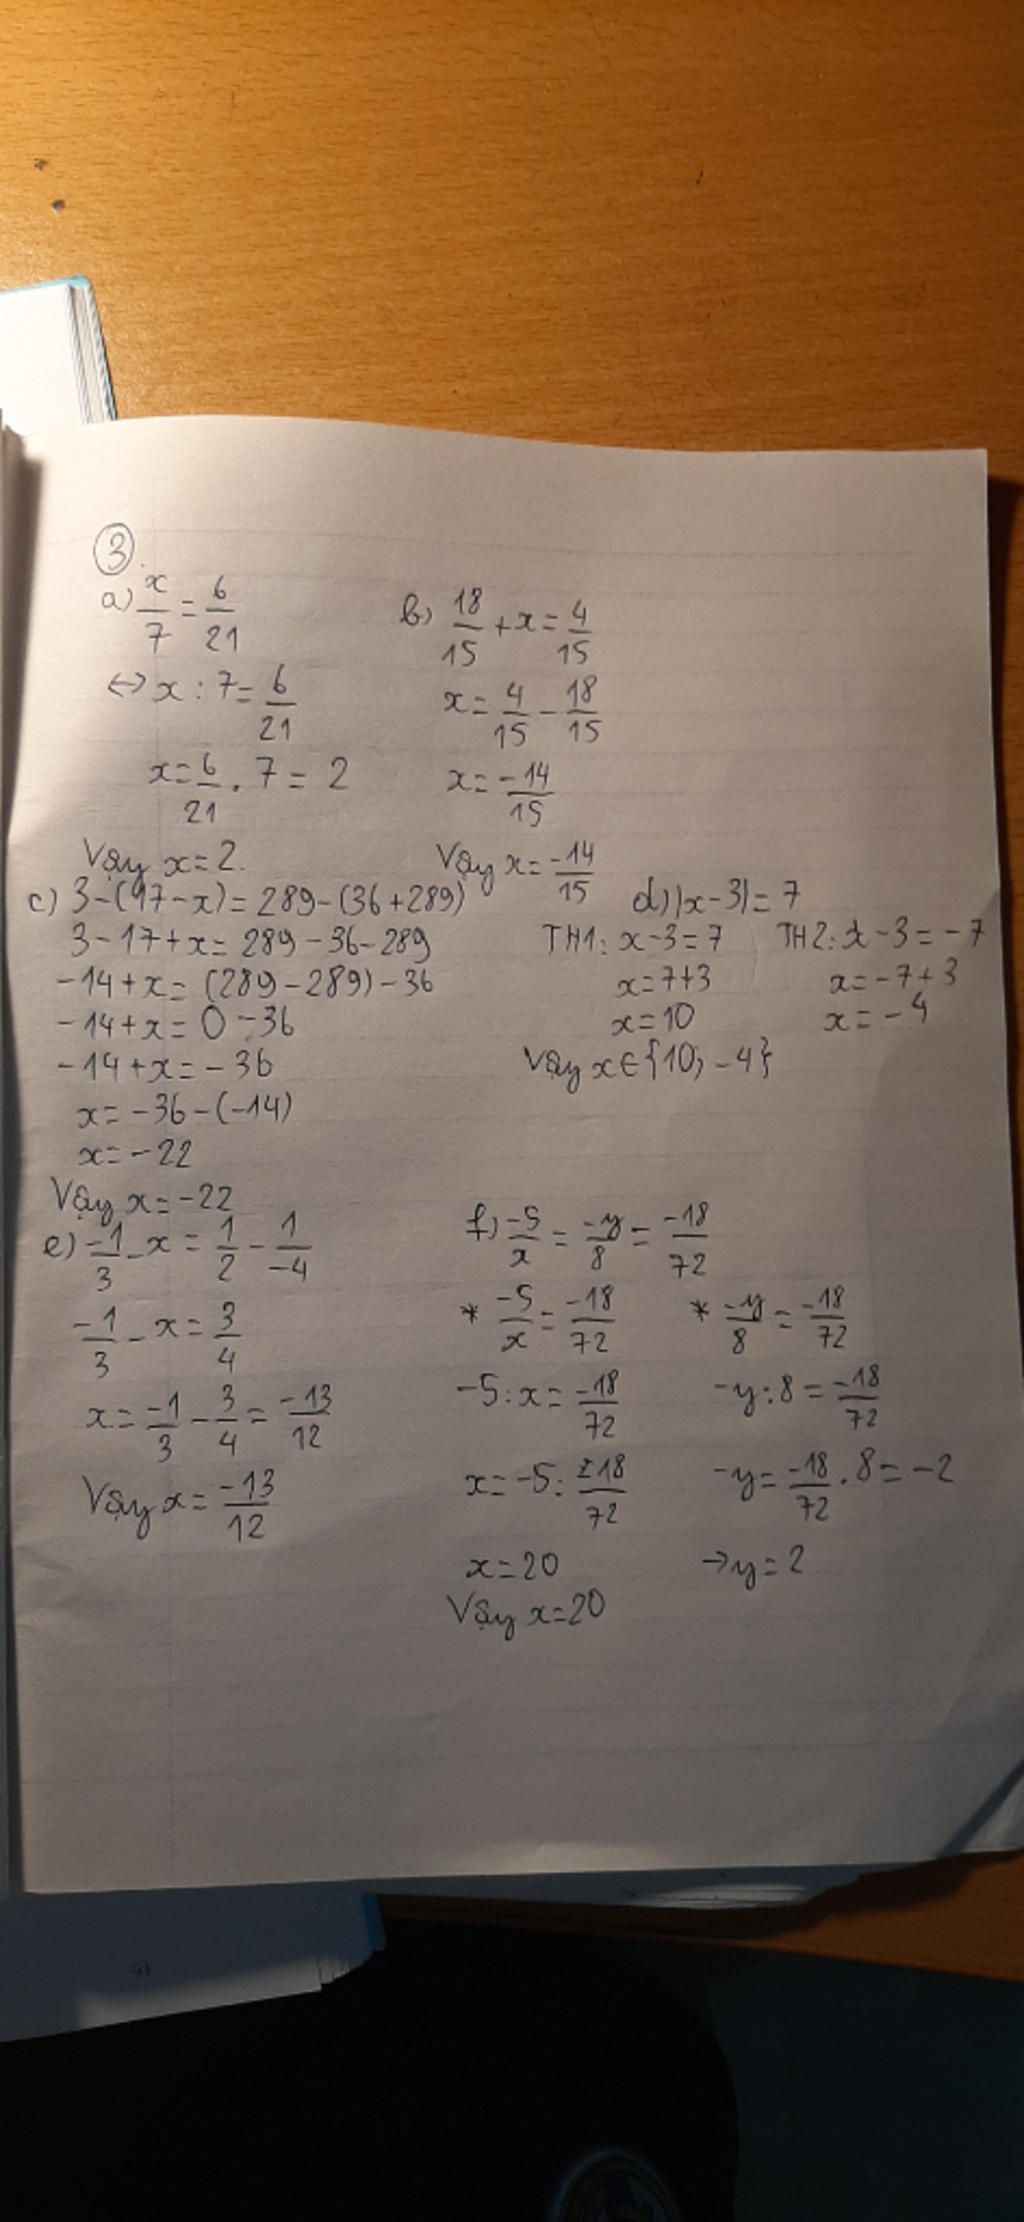 ③.
a) x/7 = 6/21
<-> x : 7 = 6/21
x = 6/21 . 7 = 2
Vậy x = 2.
b) 18/15 + x = 4/15
x = 4/15 - 18/15
x = -14/15
Vậy x = -14/15
c) 3-(17-x) = 289-(36+289)
3-17+x = 289-36-289
-14+x = (289-289)-36
-14+x = 0-36
-14+x = -36
x = -36-(-14)
x = -22
Vậy x = -22
d) |x-3| = 7
TH1: x-3 = 7
x = 7+3
x = 10
TH2: x-3 = -7
x = -7+3
x = -4
Vậy x ∈ {10; -4}
e) -1/3 - x = 1/2 - 1/-4
-1/3 - x = 3/4
x = -1/3 - 3/4 = -13/12
Vậy x = -13/12
f) -5/x = -y/8 = -18/72
* -5/x = -18/72
-5 : x = -18/72
x = -5 : -18/72
x = 20
Vậy x = 20
* -y/8 = -18/72
-y : 8 = -18/72
-y = -18/72 . 8 = -2
-> y = 2